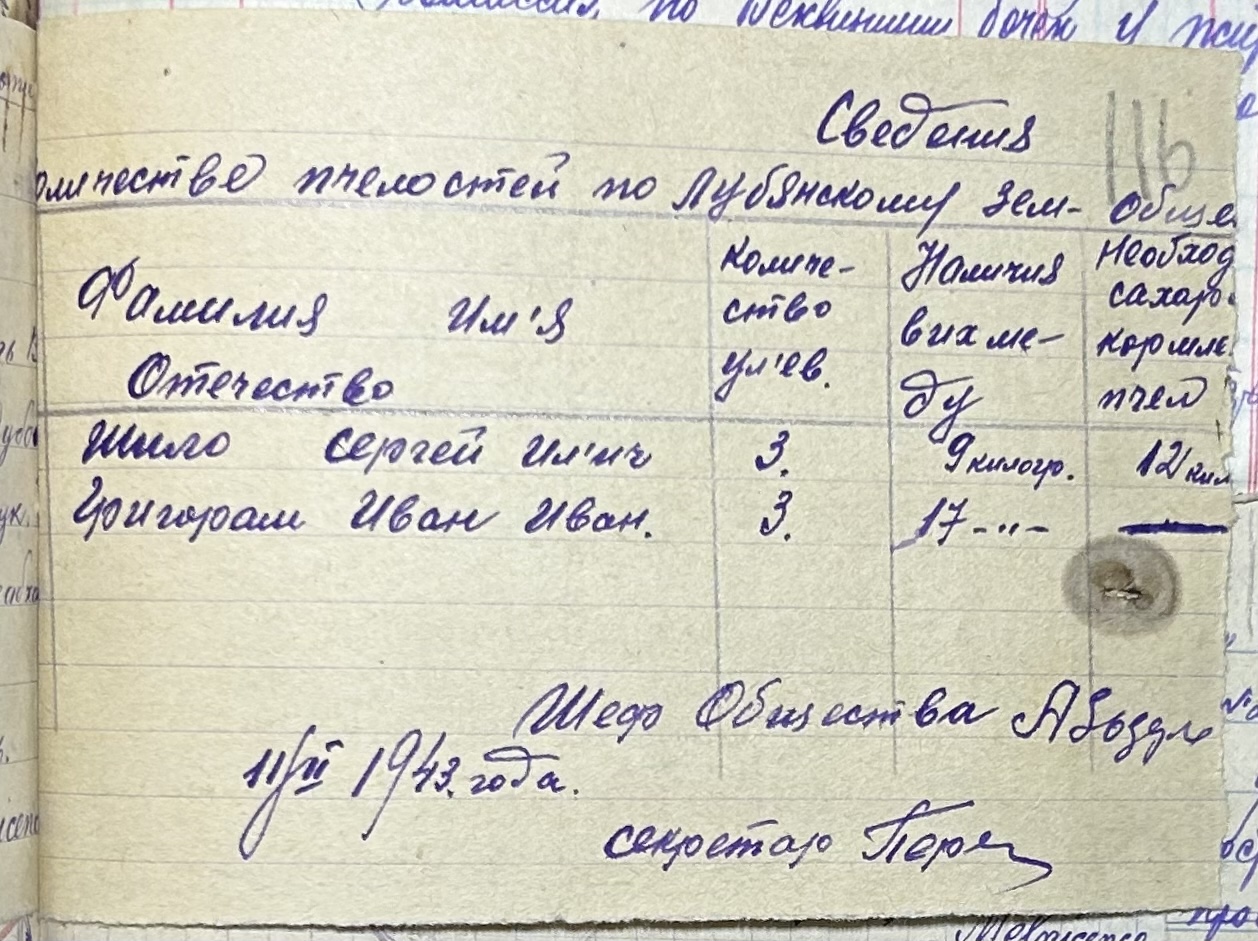 Сведения
116
оличестве пчелостей по Лубянскому Зем- Обще
Фамилия Им'я
Отечество
Количе-
ство
ул'ев.
Наличия
в их ме-
ду
Необход
сахаро
кормле
пчел
Шило Сергей Ил'ич 3. 9 килогр. 12 кил
Григорам Иван Иван. 3. 17 -"- —
Шеф Общества
11/II 1943. года.
секретар